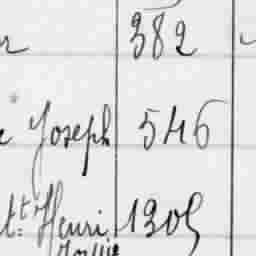 r 382
e Joseph 546
tt: Henri 1305